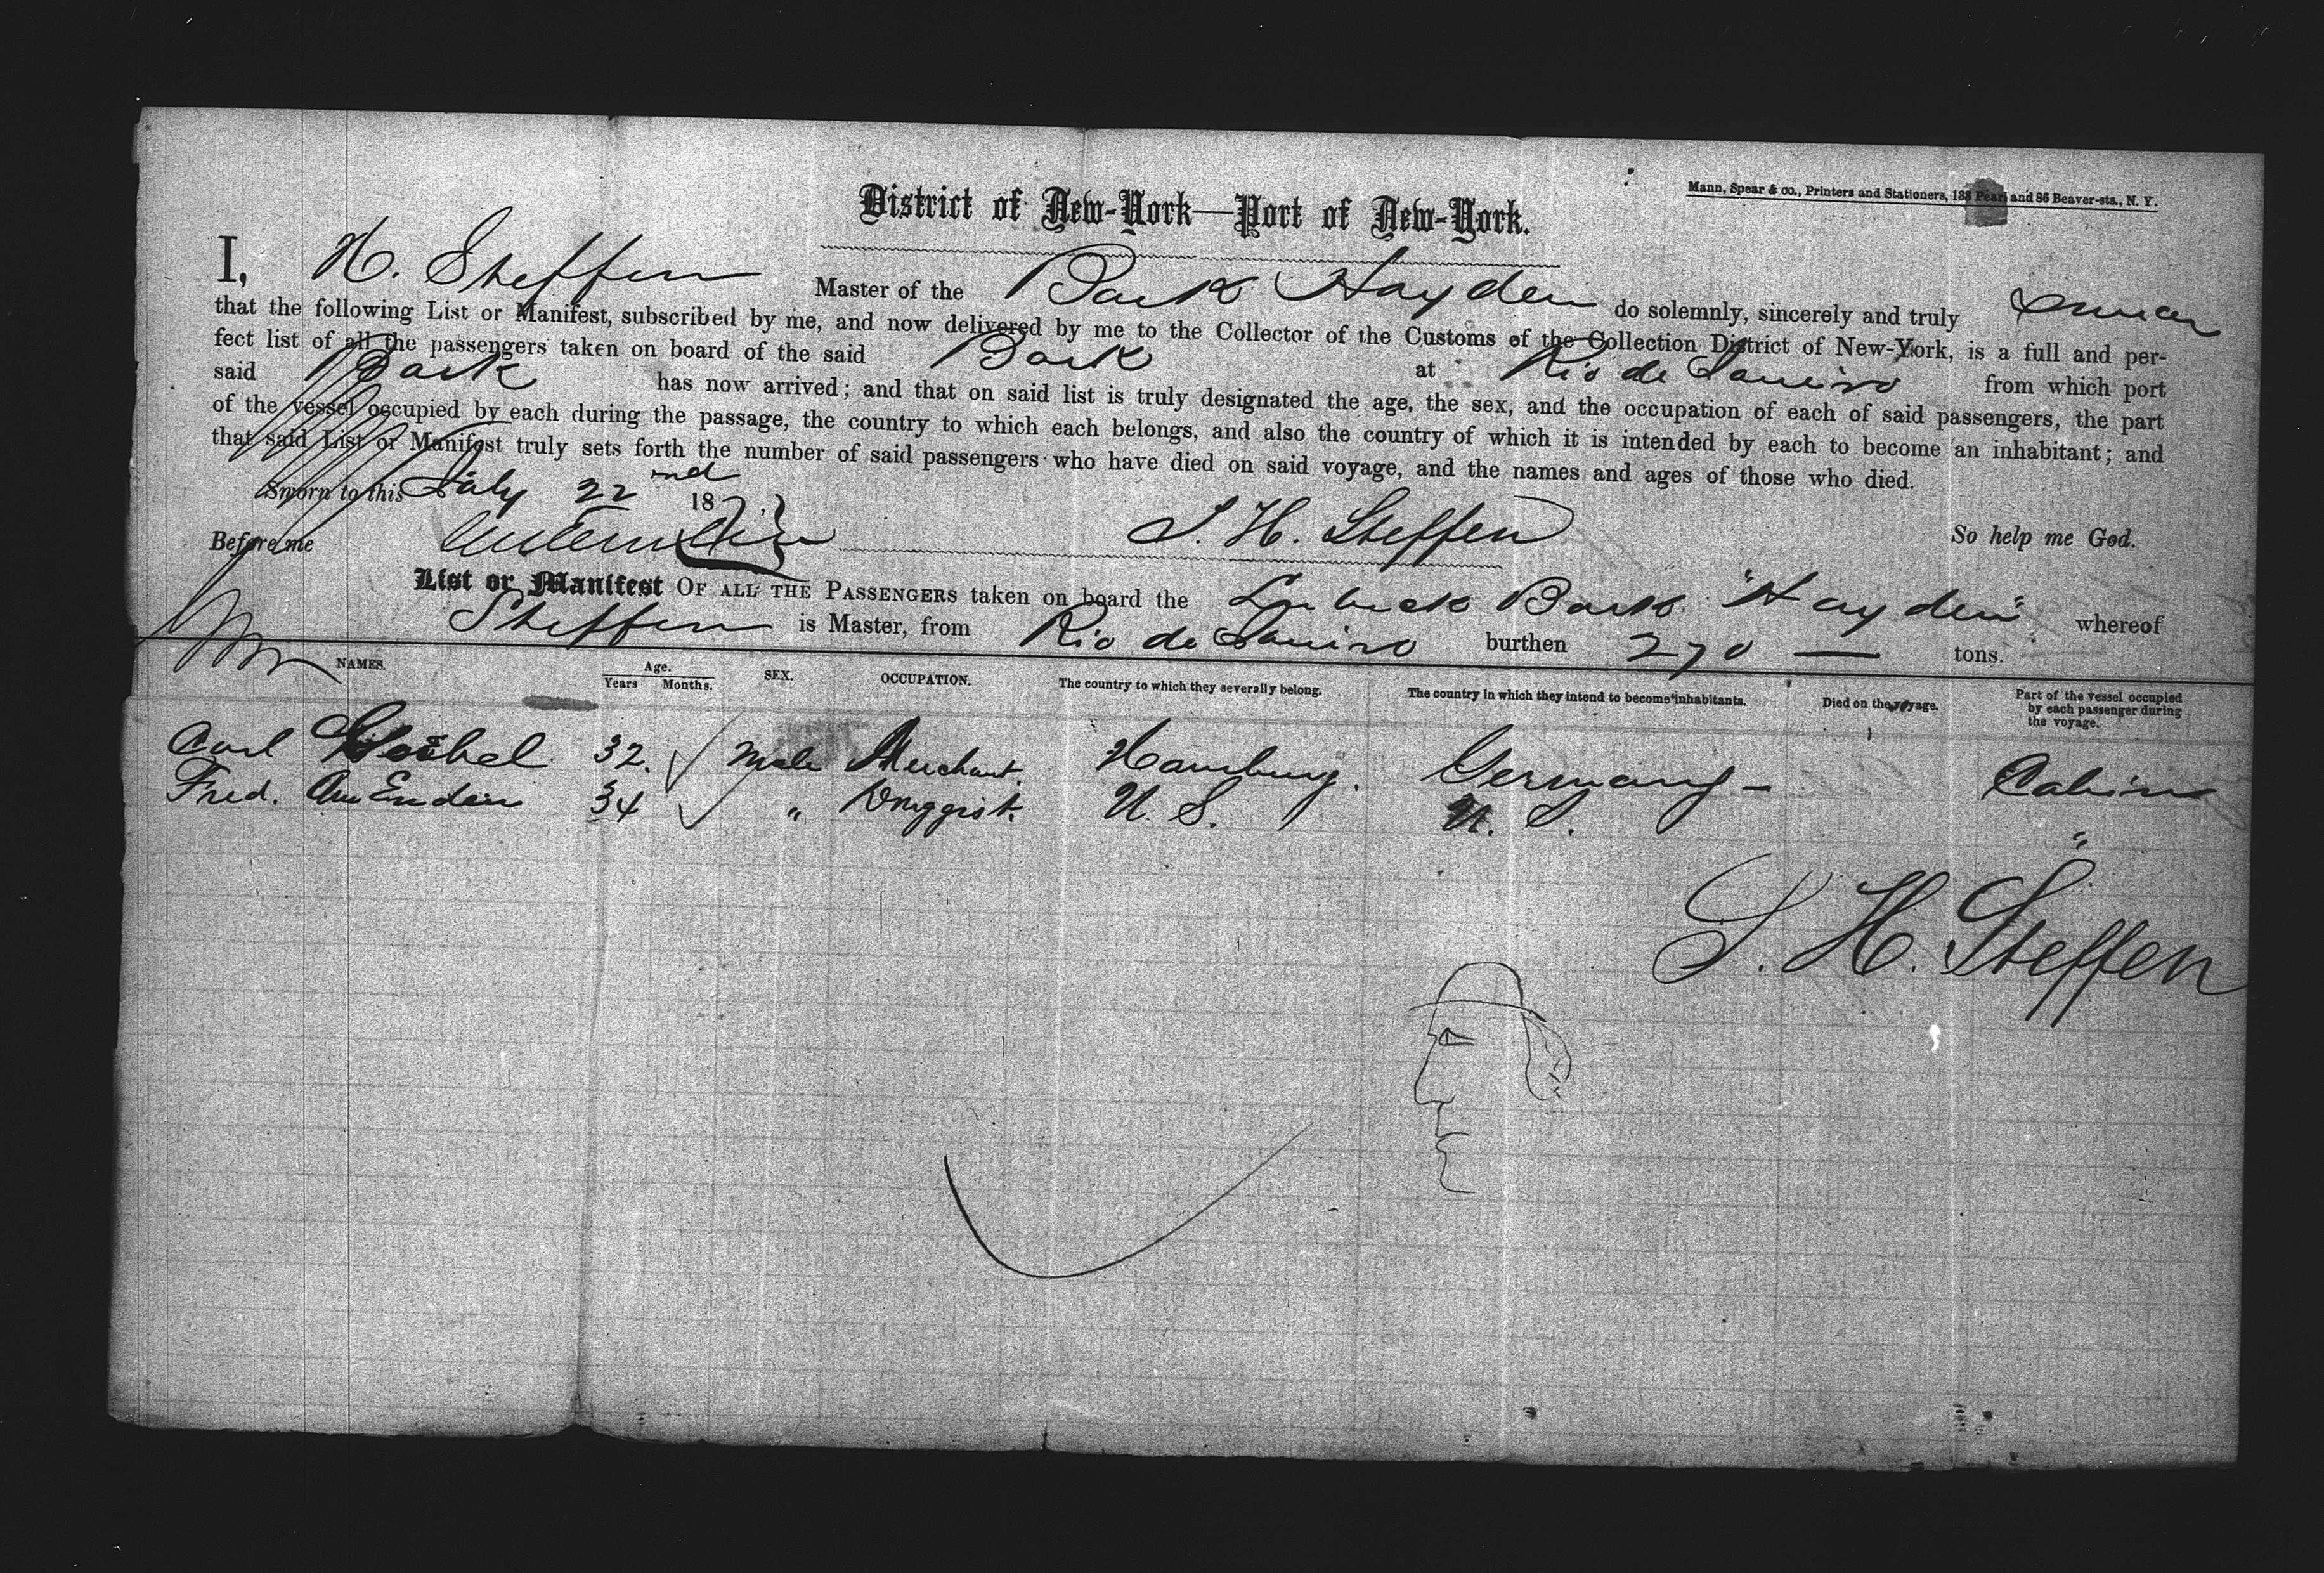 Mann, Spear & co., Printers and Stationers, 133 Pearl and 86 Beaver-sts., N. Y.
District of New-York—Port of New-York.
I, H. Steffen Master of the Bark Hayden do solemnly, sincerely and truly swear
that the following List or Manifest, subscribed by me, and now delivered by me to the Collector of the Customs of the Collection District of New-York, is a full and per-
fect list of all the passengers taken on board of the said Bark at Rio de Janeiro from which port
said Bark has now arrived; and that on said list is truly designated the age, the sex, and the occupation of each of said passengers, the part
of the vessel occupied by each during the passage, the country to which each belongs, and also the country of which it is intended by each to become an inhabitant; and
that said List or Manifest truly sets forth the number of said passengers who have died on said voyage, and the names and ages of those who died.
Sworn to this July 22nd 187
Before me J. H. Steffen So help me God.
List or Manifest OF ALL THE PASSENGERS taken on board the Lubeck Bark "Hayden" whereof
Steffen is Master, from Rio de Janeiro burthen 270 — tons.
NAMES. Age. Years Months. SEX. OCCUPATION. The country to which they severally belong. The country in which they intend to become inhabitants. Died on the voyage. Part of the vessel occupied by each passenger during the voyage.
Carl Goebel 32. Male Merchant. Hamburg. Germany – Cabin
Fred. Am Enden 34 " Druggist. U. S. U. S. "
J. H. Steffen